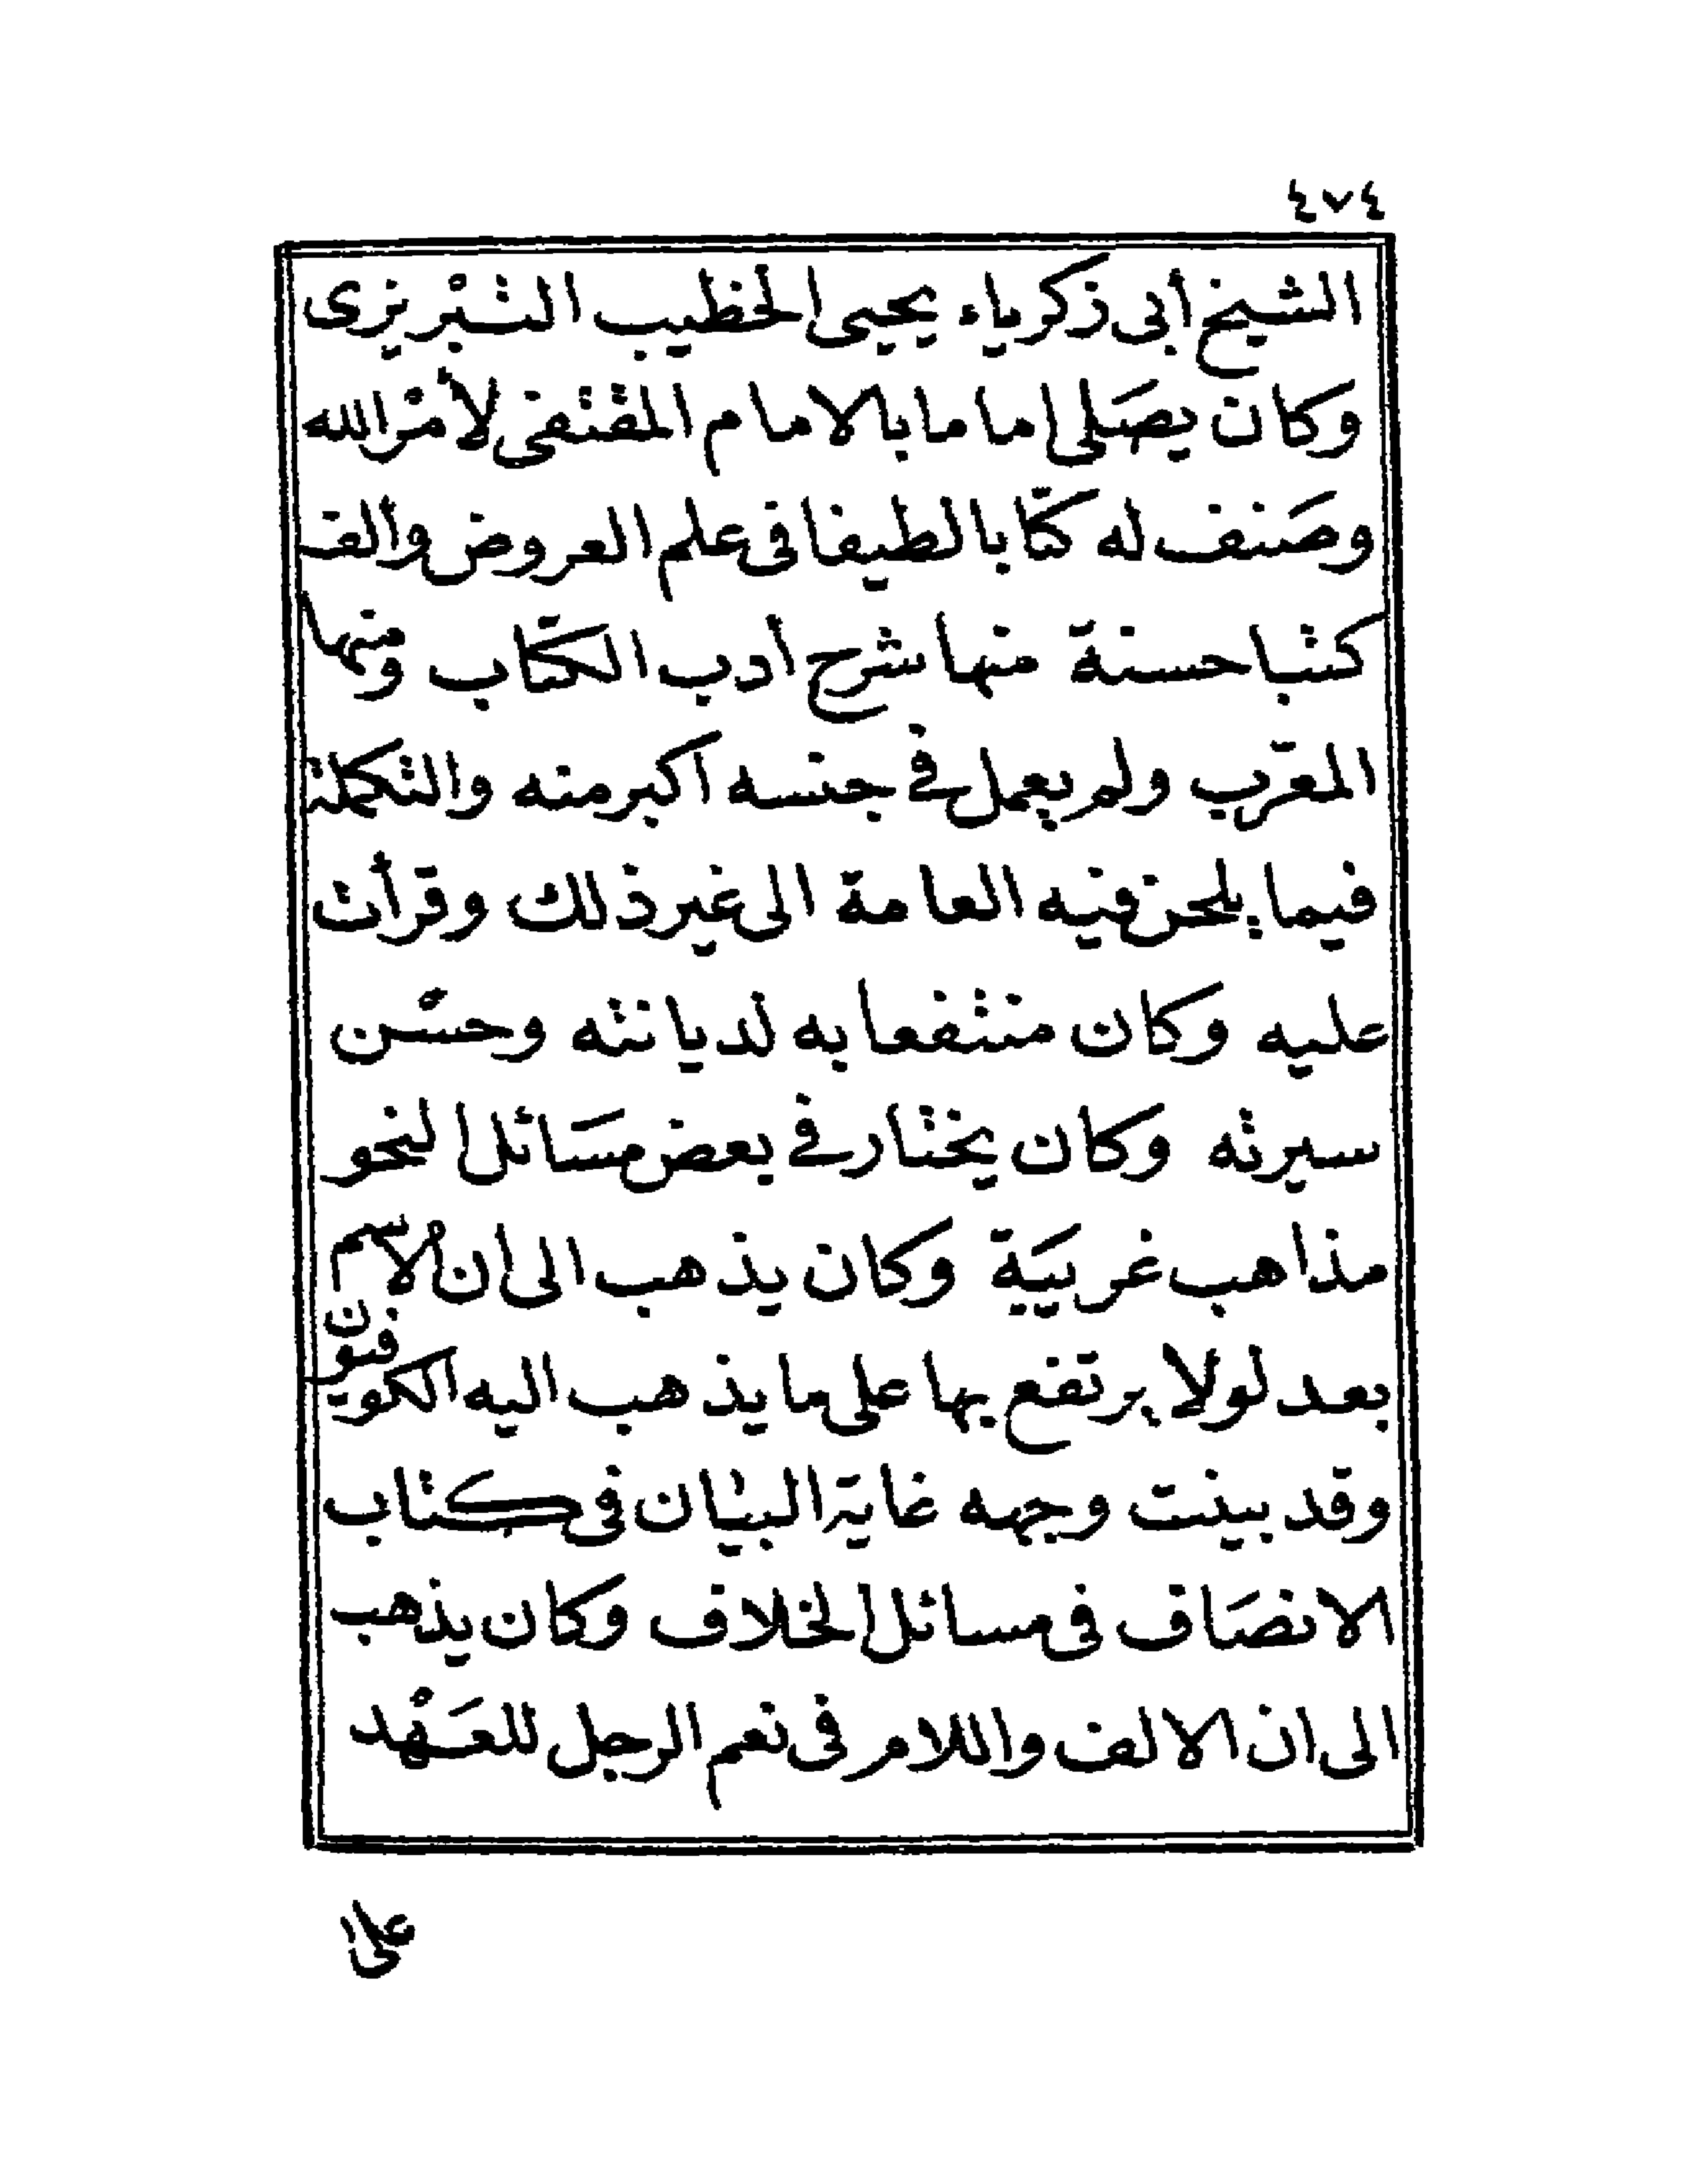 ٤٧٤
الشيخ أبى زكرياء يحيى الخطيب التبْريزى
وكان يصَلى اماما بالامام المقتفى لأمْر الله
وصَنف له كتابا لطيفا فى علم العروض وألف
كتبا حسنة منها شرح أدب الكتاب ومنها
المعرّب ولم يعمل فى جنسه اكبر منه والتكملة
فيما يلحن فيه العامة الى غير ذلك وقرأت
عليه وكان منتفعا به لديانته وحسْن
سيرته وكان يختار فى بعض مسَائل النحو
مذاهب غريبَة وكان يذهب الى ان الاسم
بعد لولا يرتفع بها على ما يذهب اليه الكوفيّون
وقد بينت وجهه غاية البيان فى كتاب
الانصَاف فى مسائل الخلاف وكان يذهب
الى ان الالف واللام فى نعم الرجل للعَهْد
على